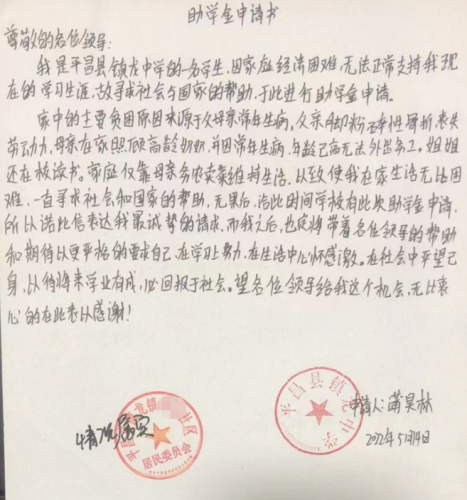 助学金申请书
尊敬的各位领导:
我是平昌县镇龙中学的一名学生,因家庭经济困难,无法正常支持我现
在的学习生涯,故寻求社会与国家的帮助,于此进行助学金申请。
家中的主要贫困原因来源于父母亲常年生病。父亲脚粉碎性骨折,丧失
劳动力,母亲在家照顾高龄奶奶,并因常年生病,年龄已高无法外出务工。姐姐
还在校读书。家庭仅靠母亲务农来维持生活,以致使我在家生活无比困
难,一直寻求社会和国家的帮助,无果后,借此时间学校有此次助学金申请,
所以诺此信表达我最诚挚的请求。而我之后,也定将带着各位领导的帮助
和期待以更严格的要求自己,在学习上努力,在生活中心怀感激。在社会中平望己
身,以待将来学业有成,必回报于社会。望各位领导给我这个机会,无比衷
心的在此表以感谢!
情况属实
平昌县 龙镇 社区
居民委员会
平昌县镇龙中学
申请人:蒲昊林
2022年5月14日